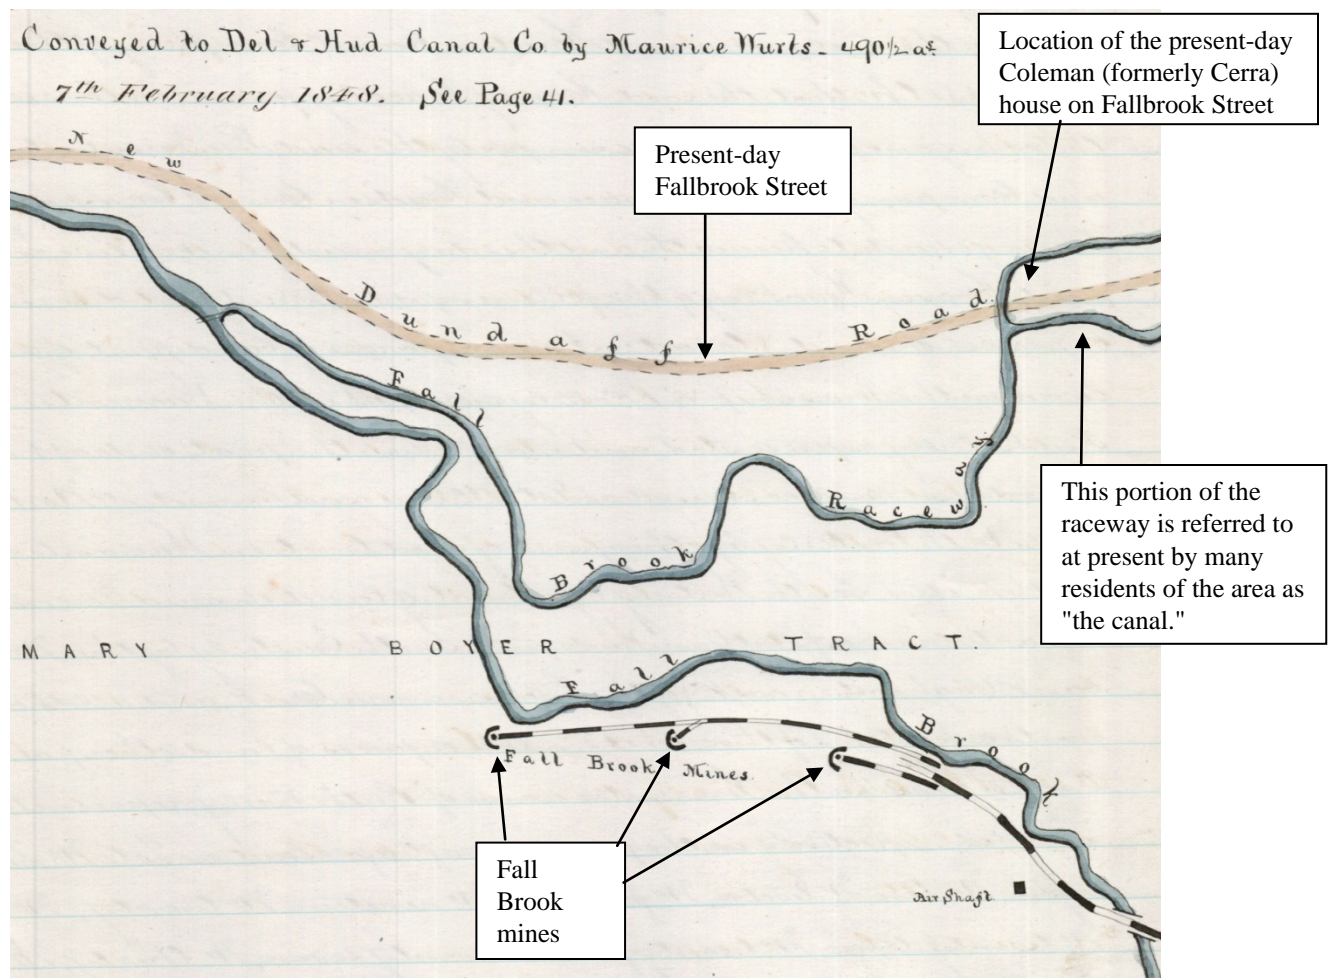 Conveyed to Del & Hud Canal Co. by Maurice Wurts - 490 1/2 as.
7th February 1848. See Page 41.
Location of the present-day
Coleman (formerly Cerra)
house on Fallbrook Street
Present-day
Fallbrook Street
New Dundaff Road
Fall Brook Raceway
This portion of the
raceway is referred to
at present by many
residents of the area as
"the canal."
MARY BOYER TRACT.
Fall Brook
Fall Brook Mines.
Fall
Brook
mines
Air Shaft